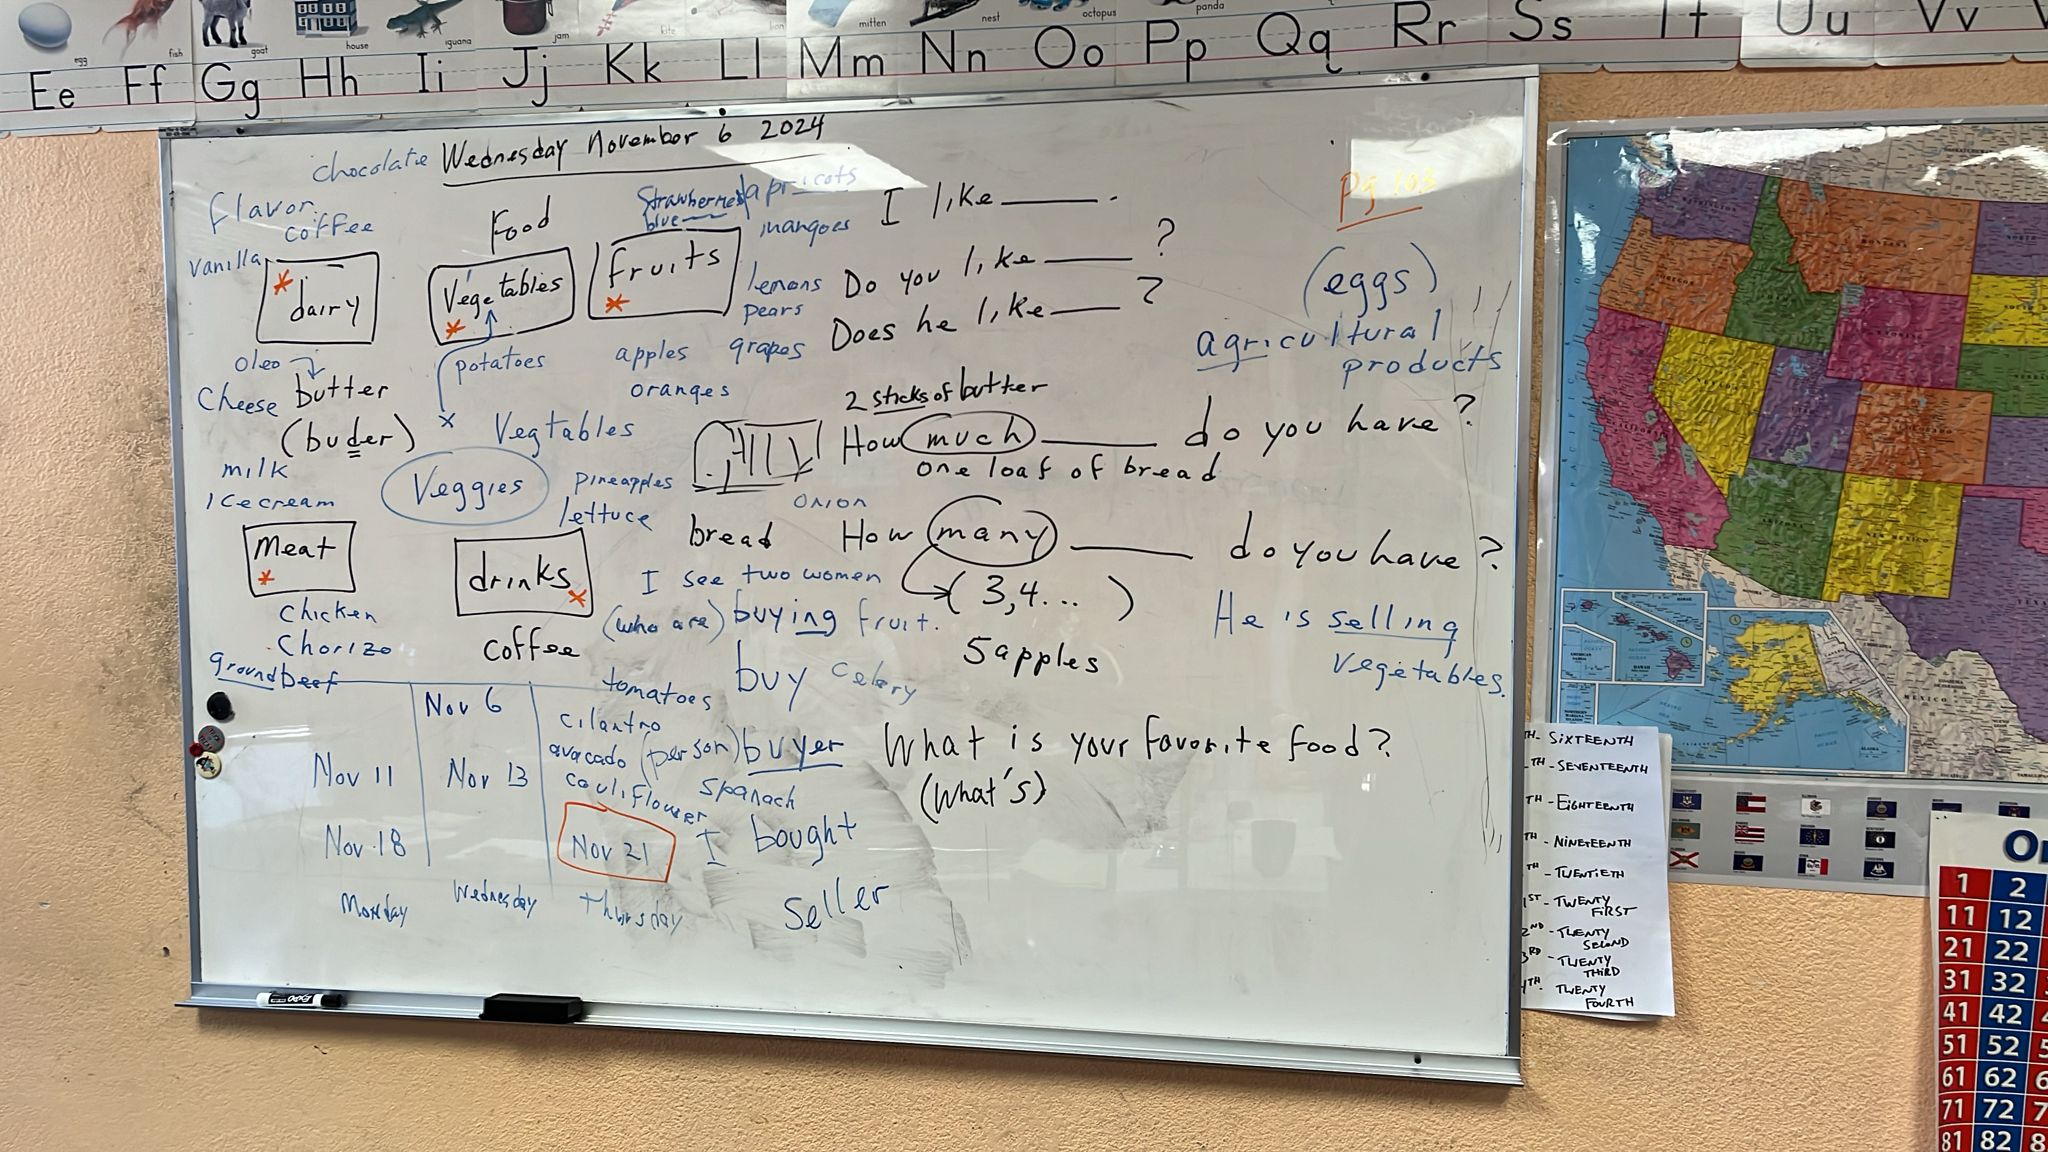 egg
fish
goat
house
iguana
jam
kite
lion
mitten
nest
octopus
panda
Ee Ff Gg Hh Ii Jj Kk Ll Mm Nn Oo Pp Qq Rr Ss Tt Uu Vv
Wednesday November 6 2024
chocolate
Flavor
coffee
Vanilla
dairy
oleo
Cheese butter
(buder)
milk
Icecream
Food
Vegetables
potatoes
x Vegtables
Veggies
Strawberries
blue
apricots
mangoes
fruits
lemons
pears
apples grapes
oranges
pineapples
lettuce
I like ______.
Do you like ______ ?
Does he like ______ ?
pg 103
(eggs)
agricultural
products
2 sticks of butter
How much ______ do you have?
one loaf of bread
onion
bread
How many ______ do you have?
(3,4... )
5 apples
meat
Chicken
Chorizo
ground beef
drinks
coffee
I see two women
(who are) buying fruit.
buy celery
He is selling
vegetables.
tomatoes
cilantro
avacado
cauliflower
(person) buyer
spanach
I bought
seller
What is your favorite food?
(What's)
Nov 6
Nov 11 Nov 13
Nov 18 Nov 21
Monday Wednesday Thursday
EXPO
TH- SIXTEENTH
TH- SEVENTEENTH
TH- EIGHTEENTH
TH- NINETEENTH
TH- TWENTIETH
1ST- TWENTY FIRST
2ND- TWENTY SECOND
3RD- TWENTY THIRD
4TH- TWENTY FOURTH
WASHINGTON
MONTANA
OREGON
IDAHO
WYOMING
NEVADA
UTAH
COLORADO
CALIFORNIA
ARIZONA
NEW MEXICO
TEXAS
MEXICO
ALASKA
HAWAII
PACIFIC
1 2
11 12
21 22
31 32
41 42
51 52
61 62
71 72
81 82